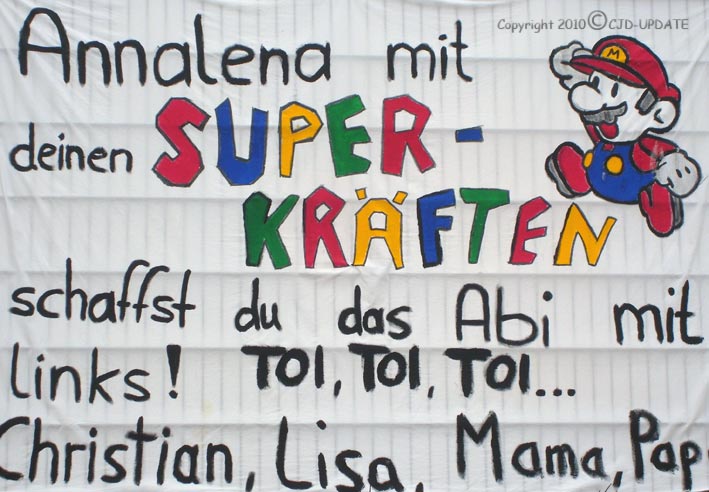 Copyright 2010 © CJD-UPDATE
Annalena mit
M
deinen SUPER-
KRÄFTEN
schaffst du das Abi mit
links! TOI, TOI, TOI...
Christian, Lisa, Mama, Pap